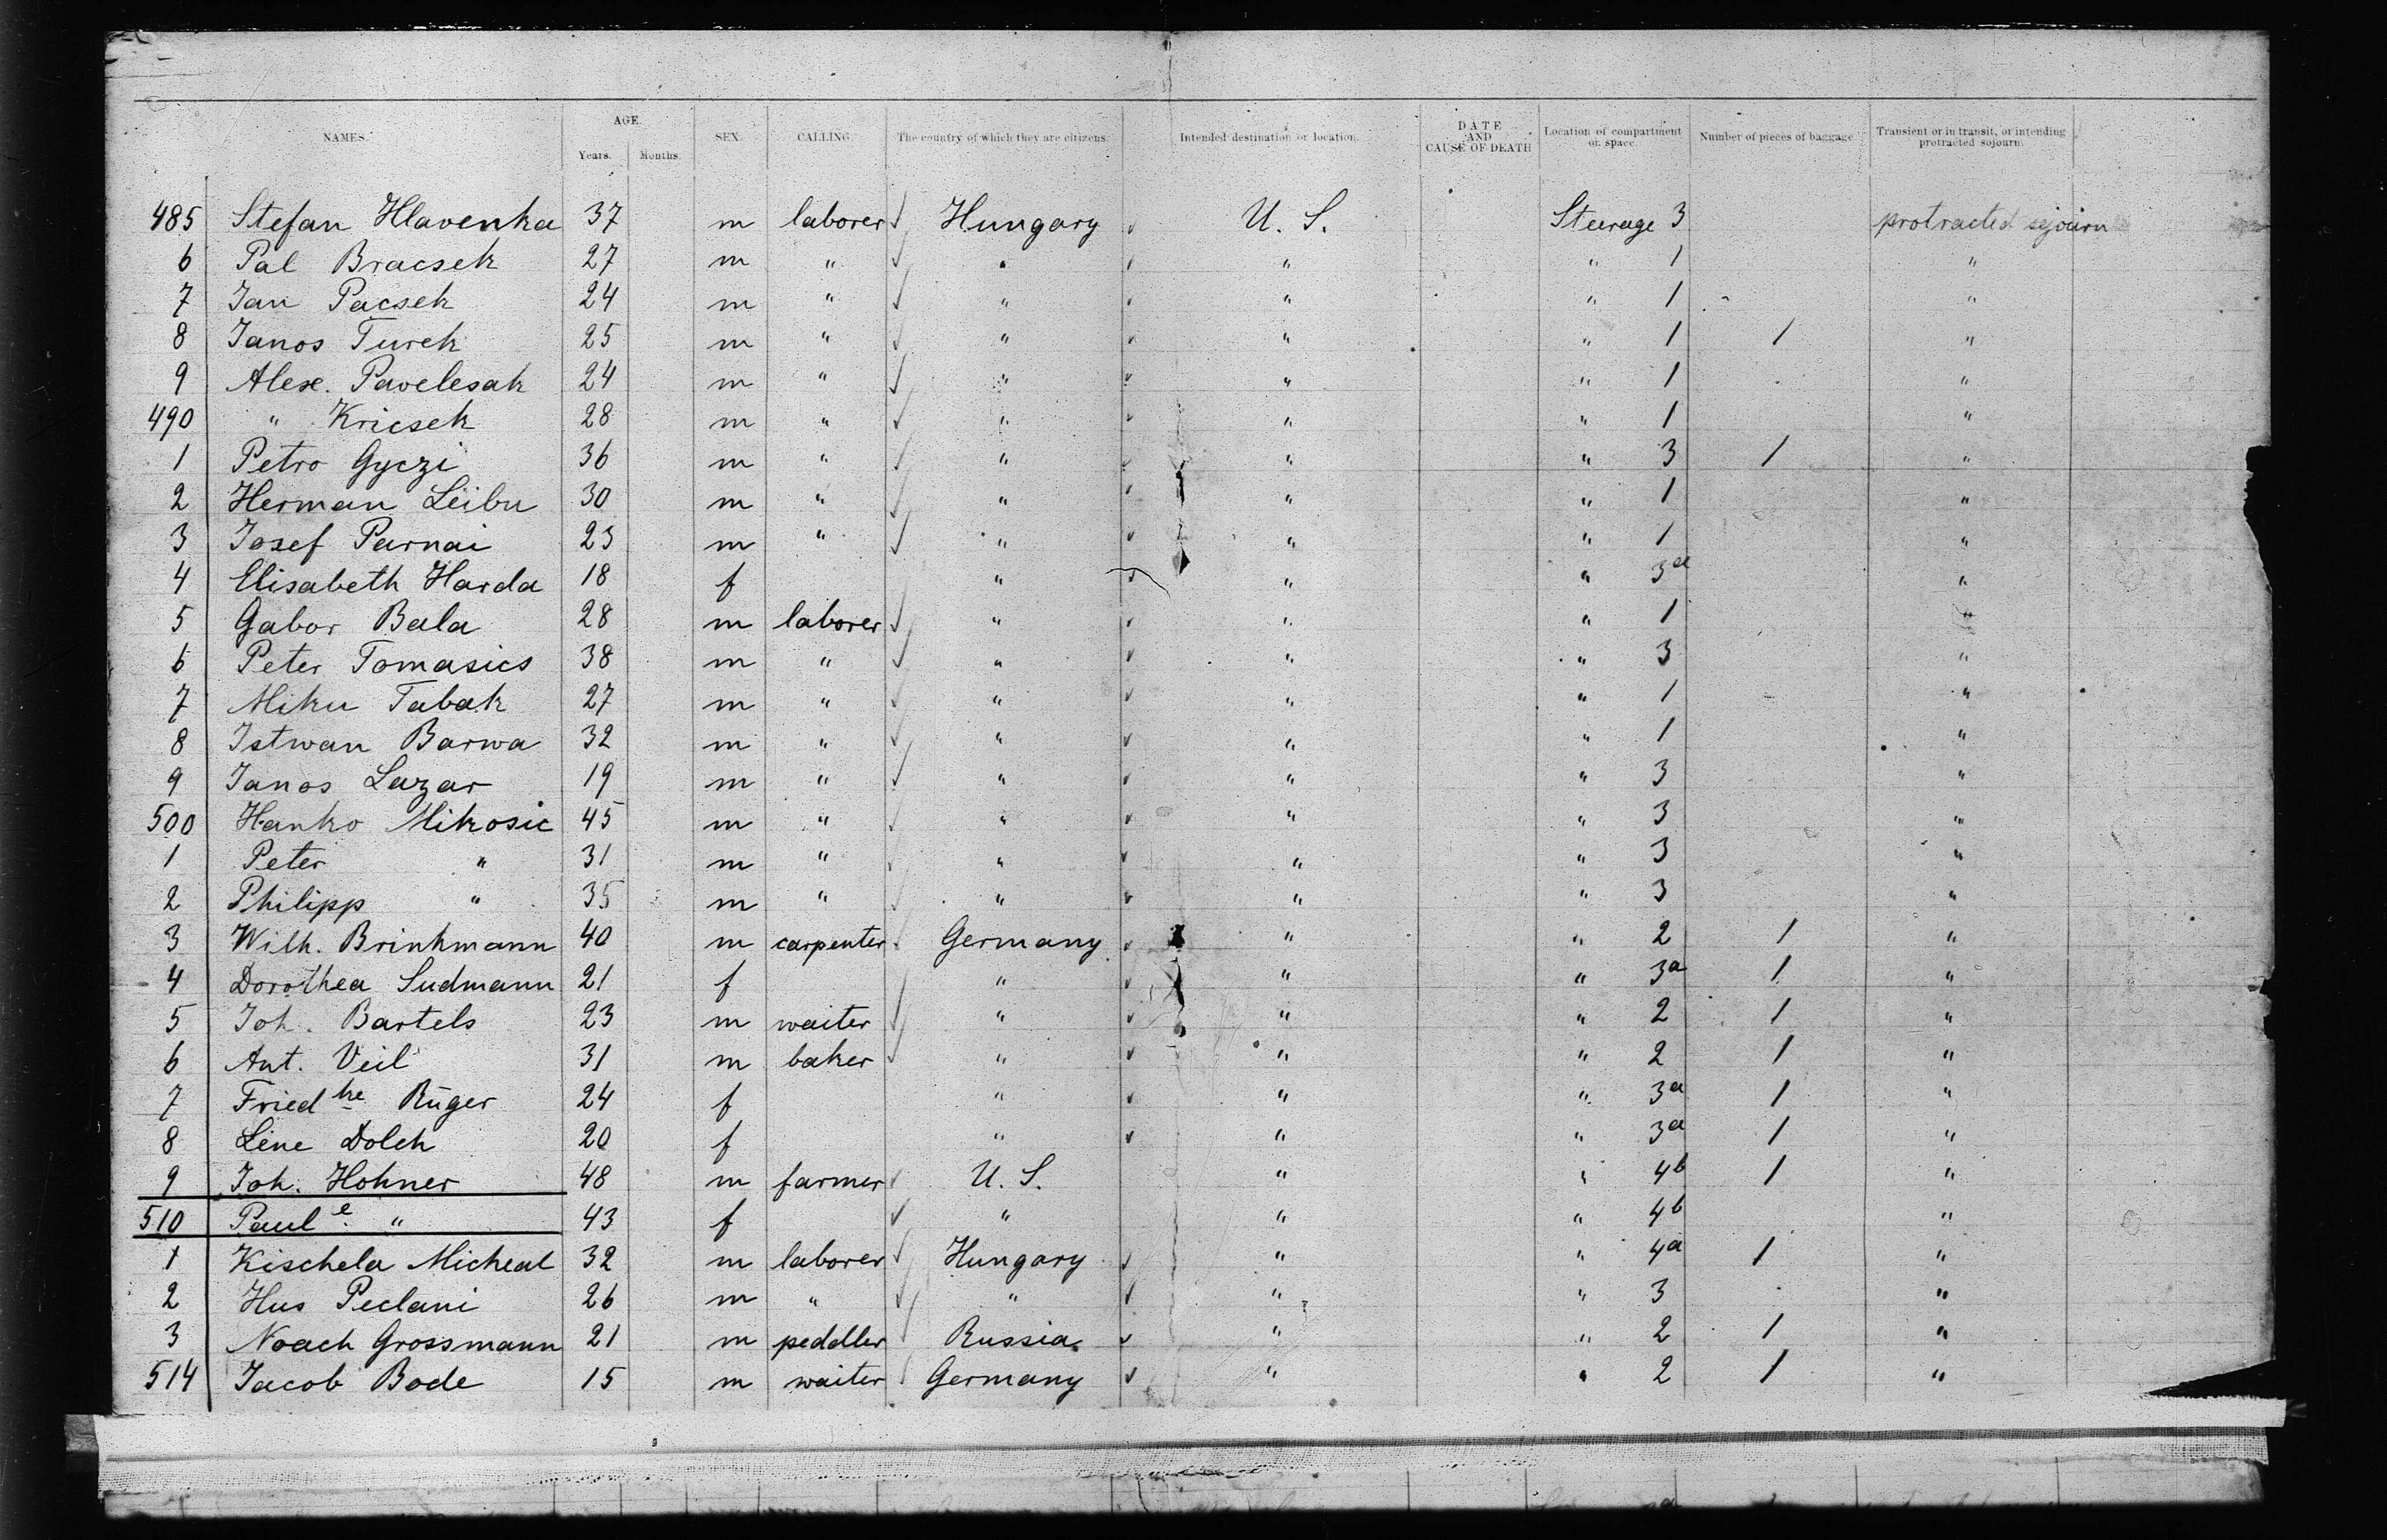 NAMES. AGE. SEX. CALLING. The country of which they are citizens. Intended destination or location. DATE AND CAUSE OF DEATH Location of compartment or space. Number of pieces of baggage Transient or in transit, or intending protracted sojourn.
Years. Months.
485 Stefan Hlavenka 37 m laborer Hungary U. S. Steerage 3 protracted sojourn
6 Pal Bracsek 27 m " " " " 1 "
7 Jan Pacsek 24 m " " " " 1 "
8 Janos Turek 25 m " " " " 1 1 "
9 Alex. Pavelesak 24 m " " " " 1 "
490 " Kricsek 28 m " " " " 1 "
1 Petro Gyczi 36 m " " " " 3 1 "
2 Herman Leibu 30 m " " " " 1 "
3 Josef Parnai 23 m " " " " 1 "
4 Elisabeth Harda 18 f " " " 3a "
5 Gabor Bala 28 m laborer " " " 1 "
6 Peter Tomasics 38 m " " " " 3 "
7 Miku Tabak 27 m " " " " 1 "
8 Istwan Barwa 32 m " " " " 1 "
9 Janos Lazar 19 m " " " " 3 "
500 Hanko Mikosic 45 m " " " " 3 "
1 Peter " 31 m " " " " 3 "
2 Philipp " 35 m " " " " 3 "
3 Wilh. Brinkmann 40 m carpenter Germany " " 2 1 "
4 Dorothea Sudmann 21 f " " " 3a 1 "
5 Joh. Bartels 23 m waiter " " " 2 1 "
6 Ant. Veil 31 m baker " " " 2 1 "
7 Friedke Rüger 24 f " " " 3a 1 "
8 Line Dolch 20 f " " " 3a 1 "
9 Joh. Hohner 48 m farmer U. S. " " 4b 1 "
510 Paule " 43 f " " " 4b "
1 Kischela Micheal 32 m laborer Hungary " " 4a 1 "
2 Hus Peclani 26 m " " " " 3 "
3 Noach Grossmann 21 m peddler Russia " " 2 1 "
514 Jacob Bode 15 m waiter Germany " " 2 1 "